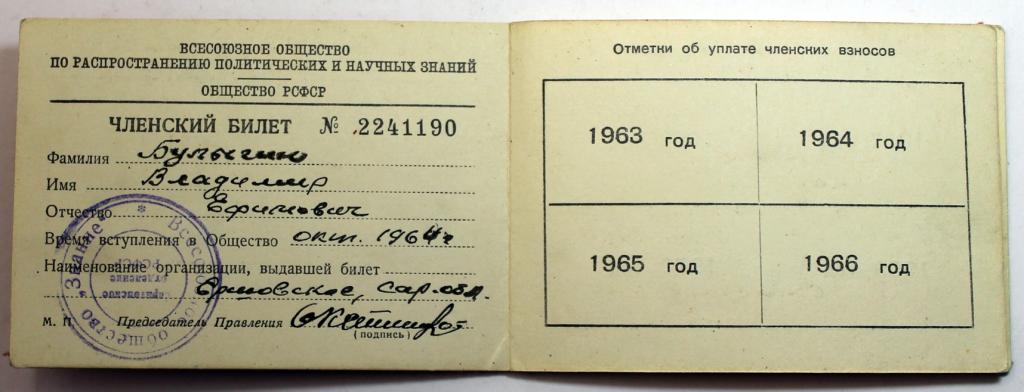 ВСЕСОЮЗНОЕ ОБЩЕСТВО
ПО РАСПРОСТРАНЕНИЮ ПОЛИТИЧЕСКИХ И НАУЧНЫХ ЗНАНИЙ
ОБЩЕСТВО РСФСР
ЧЛЕНСКИЙ БИЛЕТ № 2241190
Фамилия Булыгин
Имя Владимир
Отчество Ефимович
Время вступления в Общество окт. 1964 г
Наименование организации, выдавшей билет
сар. обл.
М. П. Председатель Правления
(подпись)
Общество "Знание" РСФСР
Отметки об уплате членских взносов
1963 год
1964 год
1965 год
1966 год